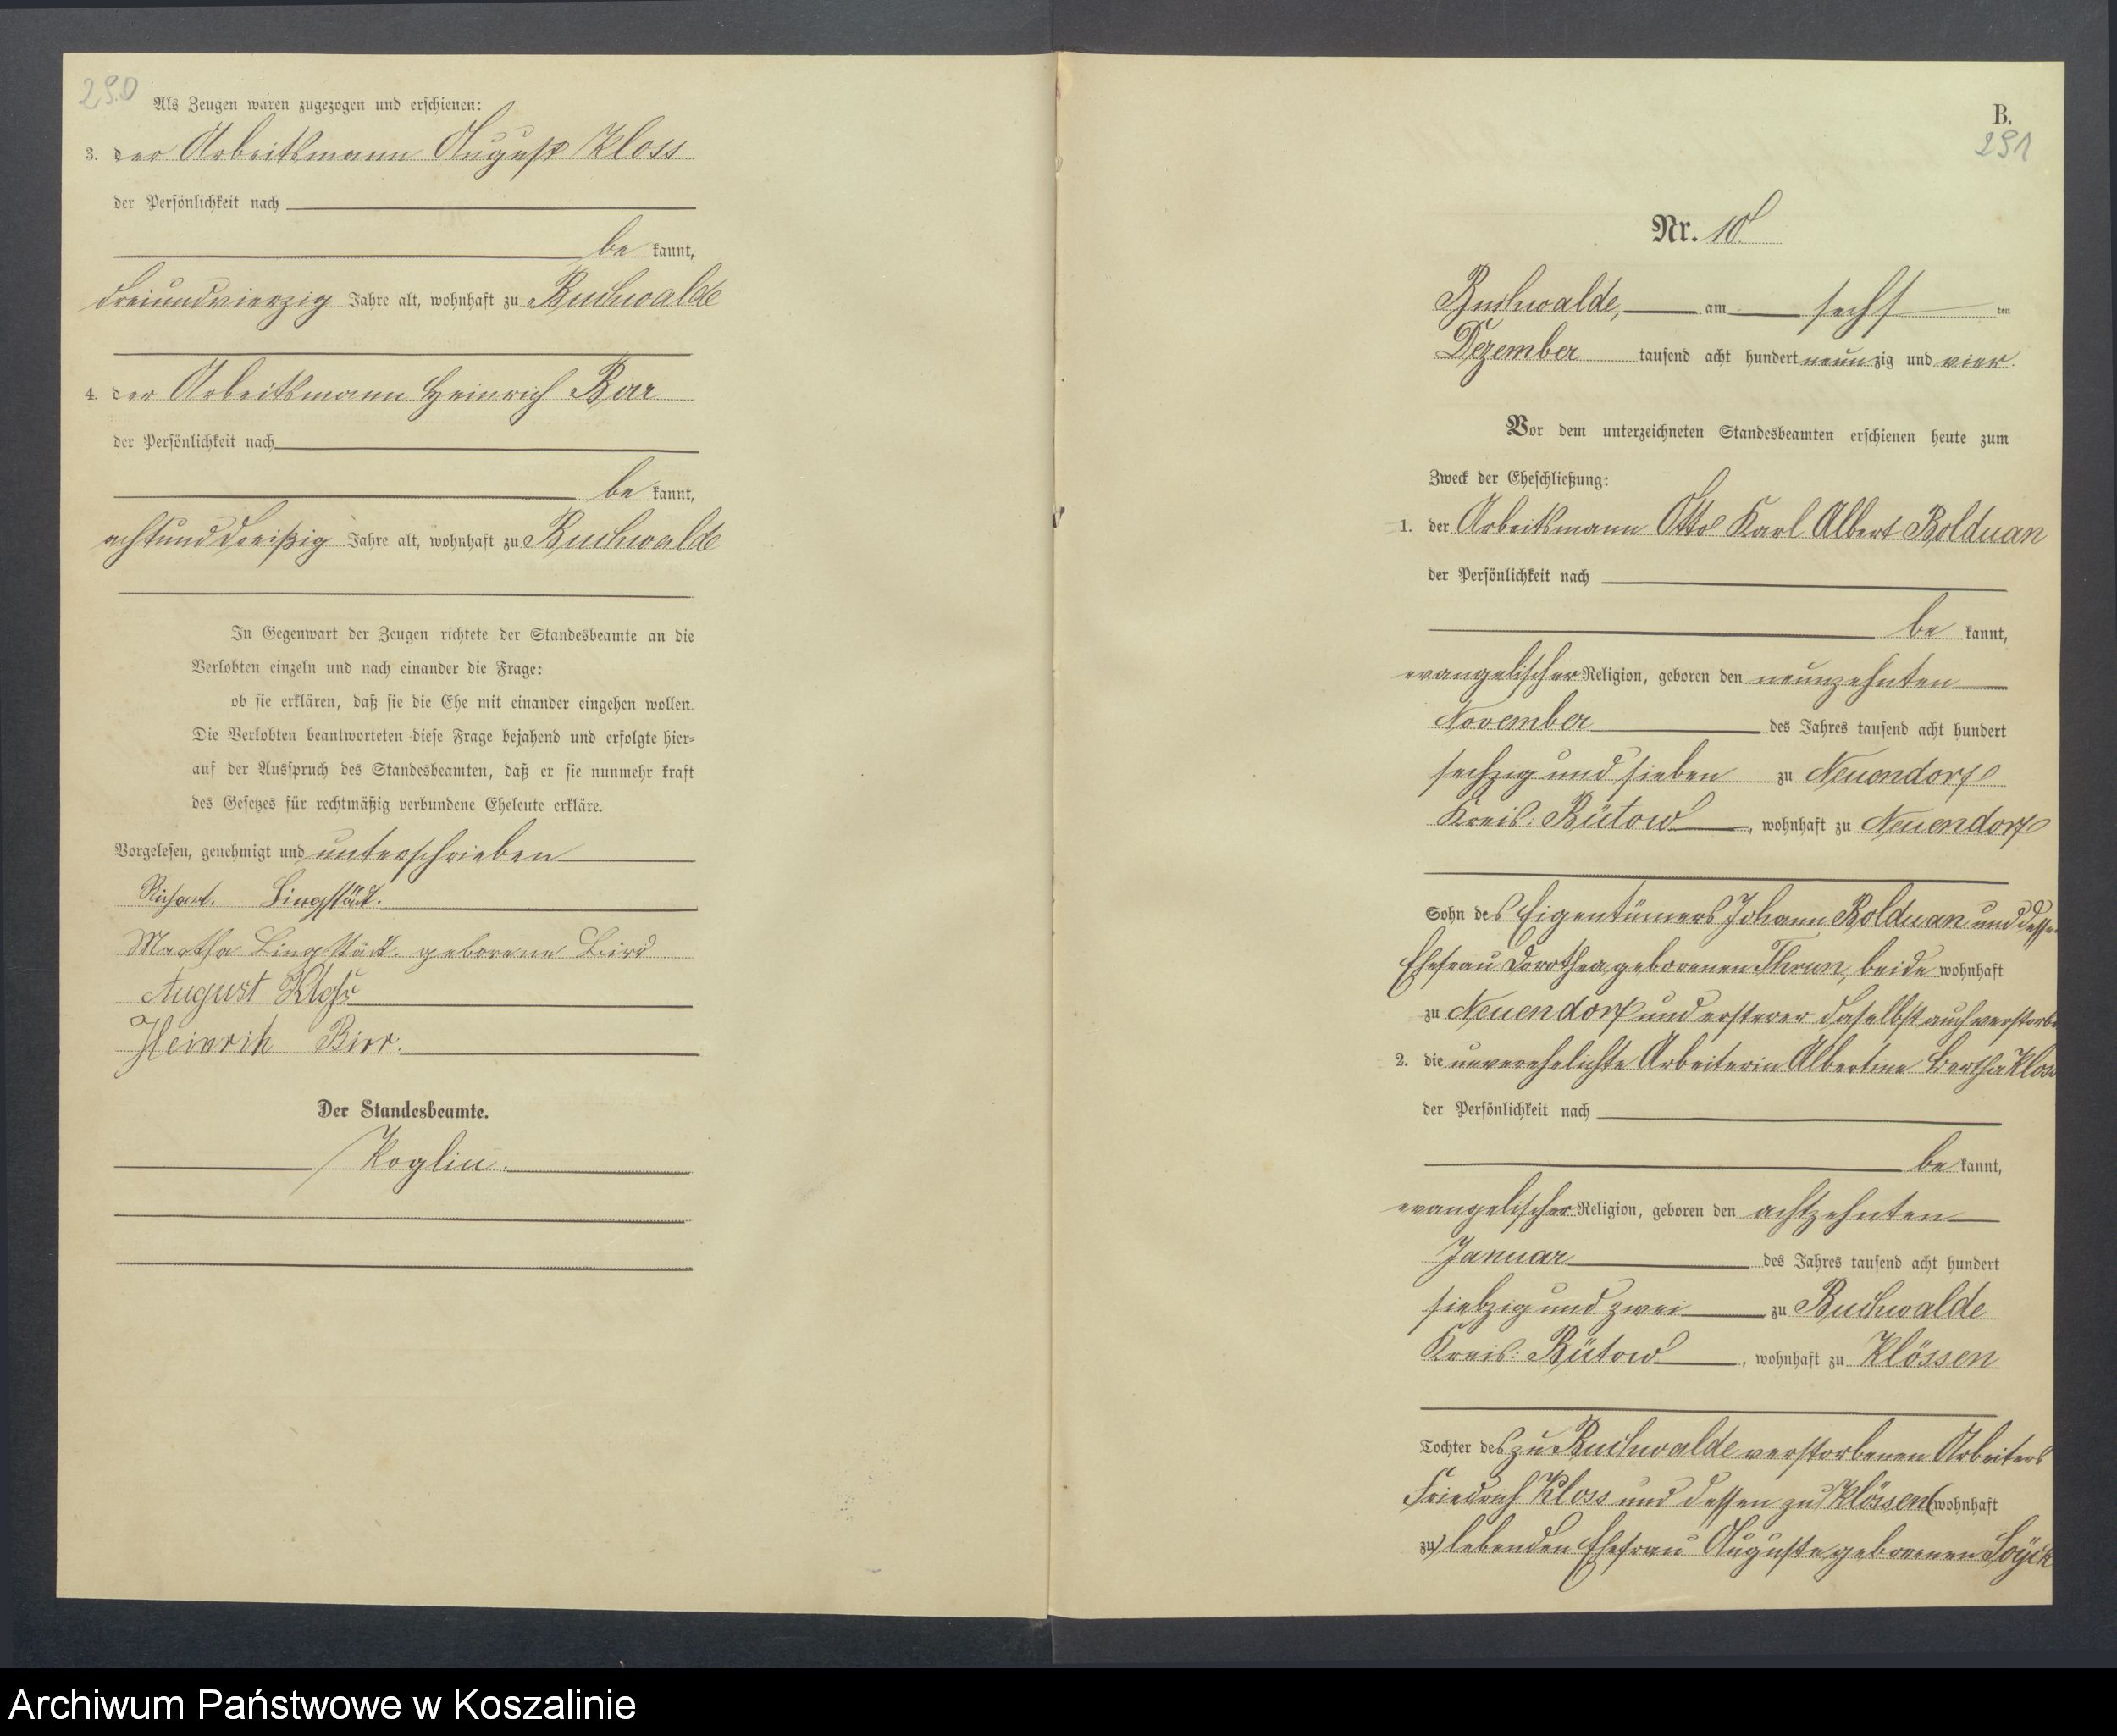 290
Als Zeugen waren zugezogen und erschienen:
3. der Arbeitsmann August Kloss
der Persönlichkeit nach
be kannt,
dreiundvierzig Jahre alt, wohnhaft zu Buchwalde
4. der Arbeitsmann Heinrich Birr
der Persönlichkeit nach
be kannt,
achtunddreißig Jahre alt, wohnhaft zu Buchwalde
In Gegenwart der Zeugen richtete der Standesbeamte an die
Verlobten einzeln und nach einander die Frage:
ob sie erklären, daß sie die Ehe mit einander eingehen wollen.
Die Verlobten beantworteten diese Frage bejahend und erfolgte hier-
auf der Ausspruch des Standesbeamten, daß er sie nunmehr kraft
des Gesetzes für rechtmäßig verbundene Eheleute erkläre.
Vorgelesen, genehmigt und unterschrieben
Richard. Lingstädt.
Martha Lingstädt. geborene Birr
August Kloß
Heinrih Birr.
Der Standesbeamte.
Koglin.
B.
291
Nr. 10.
Buchwalde, am sechs ten
Dezember tausend acht hundert neun zig und vier.
Vor dem unterzeichneten Standesbeamten erschienen heute zum
Zweck der Eheschließung:
1. der Arbeitsmann Otto Karl Albert Bolduan
der Persönlichkeit nach
be kannt,
evangelischer Religion, geboren den neunzehnten
November des Jahres tausend acht hundert
sechzig und sieben zu Neuendorf
Kreis: Bütow, wohnhaft zu Neuendorf
Sohn des Eigentümers Johann Bolduan und dessen
Ehefrau Dorothea geborenen Thrun, beide wohnhaft
zu Neuendorf und ersterer daselbst auch verstorben
2. die unverehelichte Arbeiterin Albertine Bertha Kloss
der Persönlichkeit nach
be kannt,
evangelischer Religion, geboren den achtzehnten
Januar des Jahres tausend acht hundert
siebzig und zwei zu Buchwalde
Kreis: Bütow, wohnhaft zu Klössen
Tochter des zu Buchwalde verstorbenen Arbeiters
Friedrich Kloss und dessen zu Klössen (wohnhaft
zu) lebenden Ehefrau Auguste geborenen
Archiwum Państwowe w Koszalinie